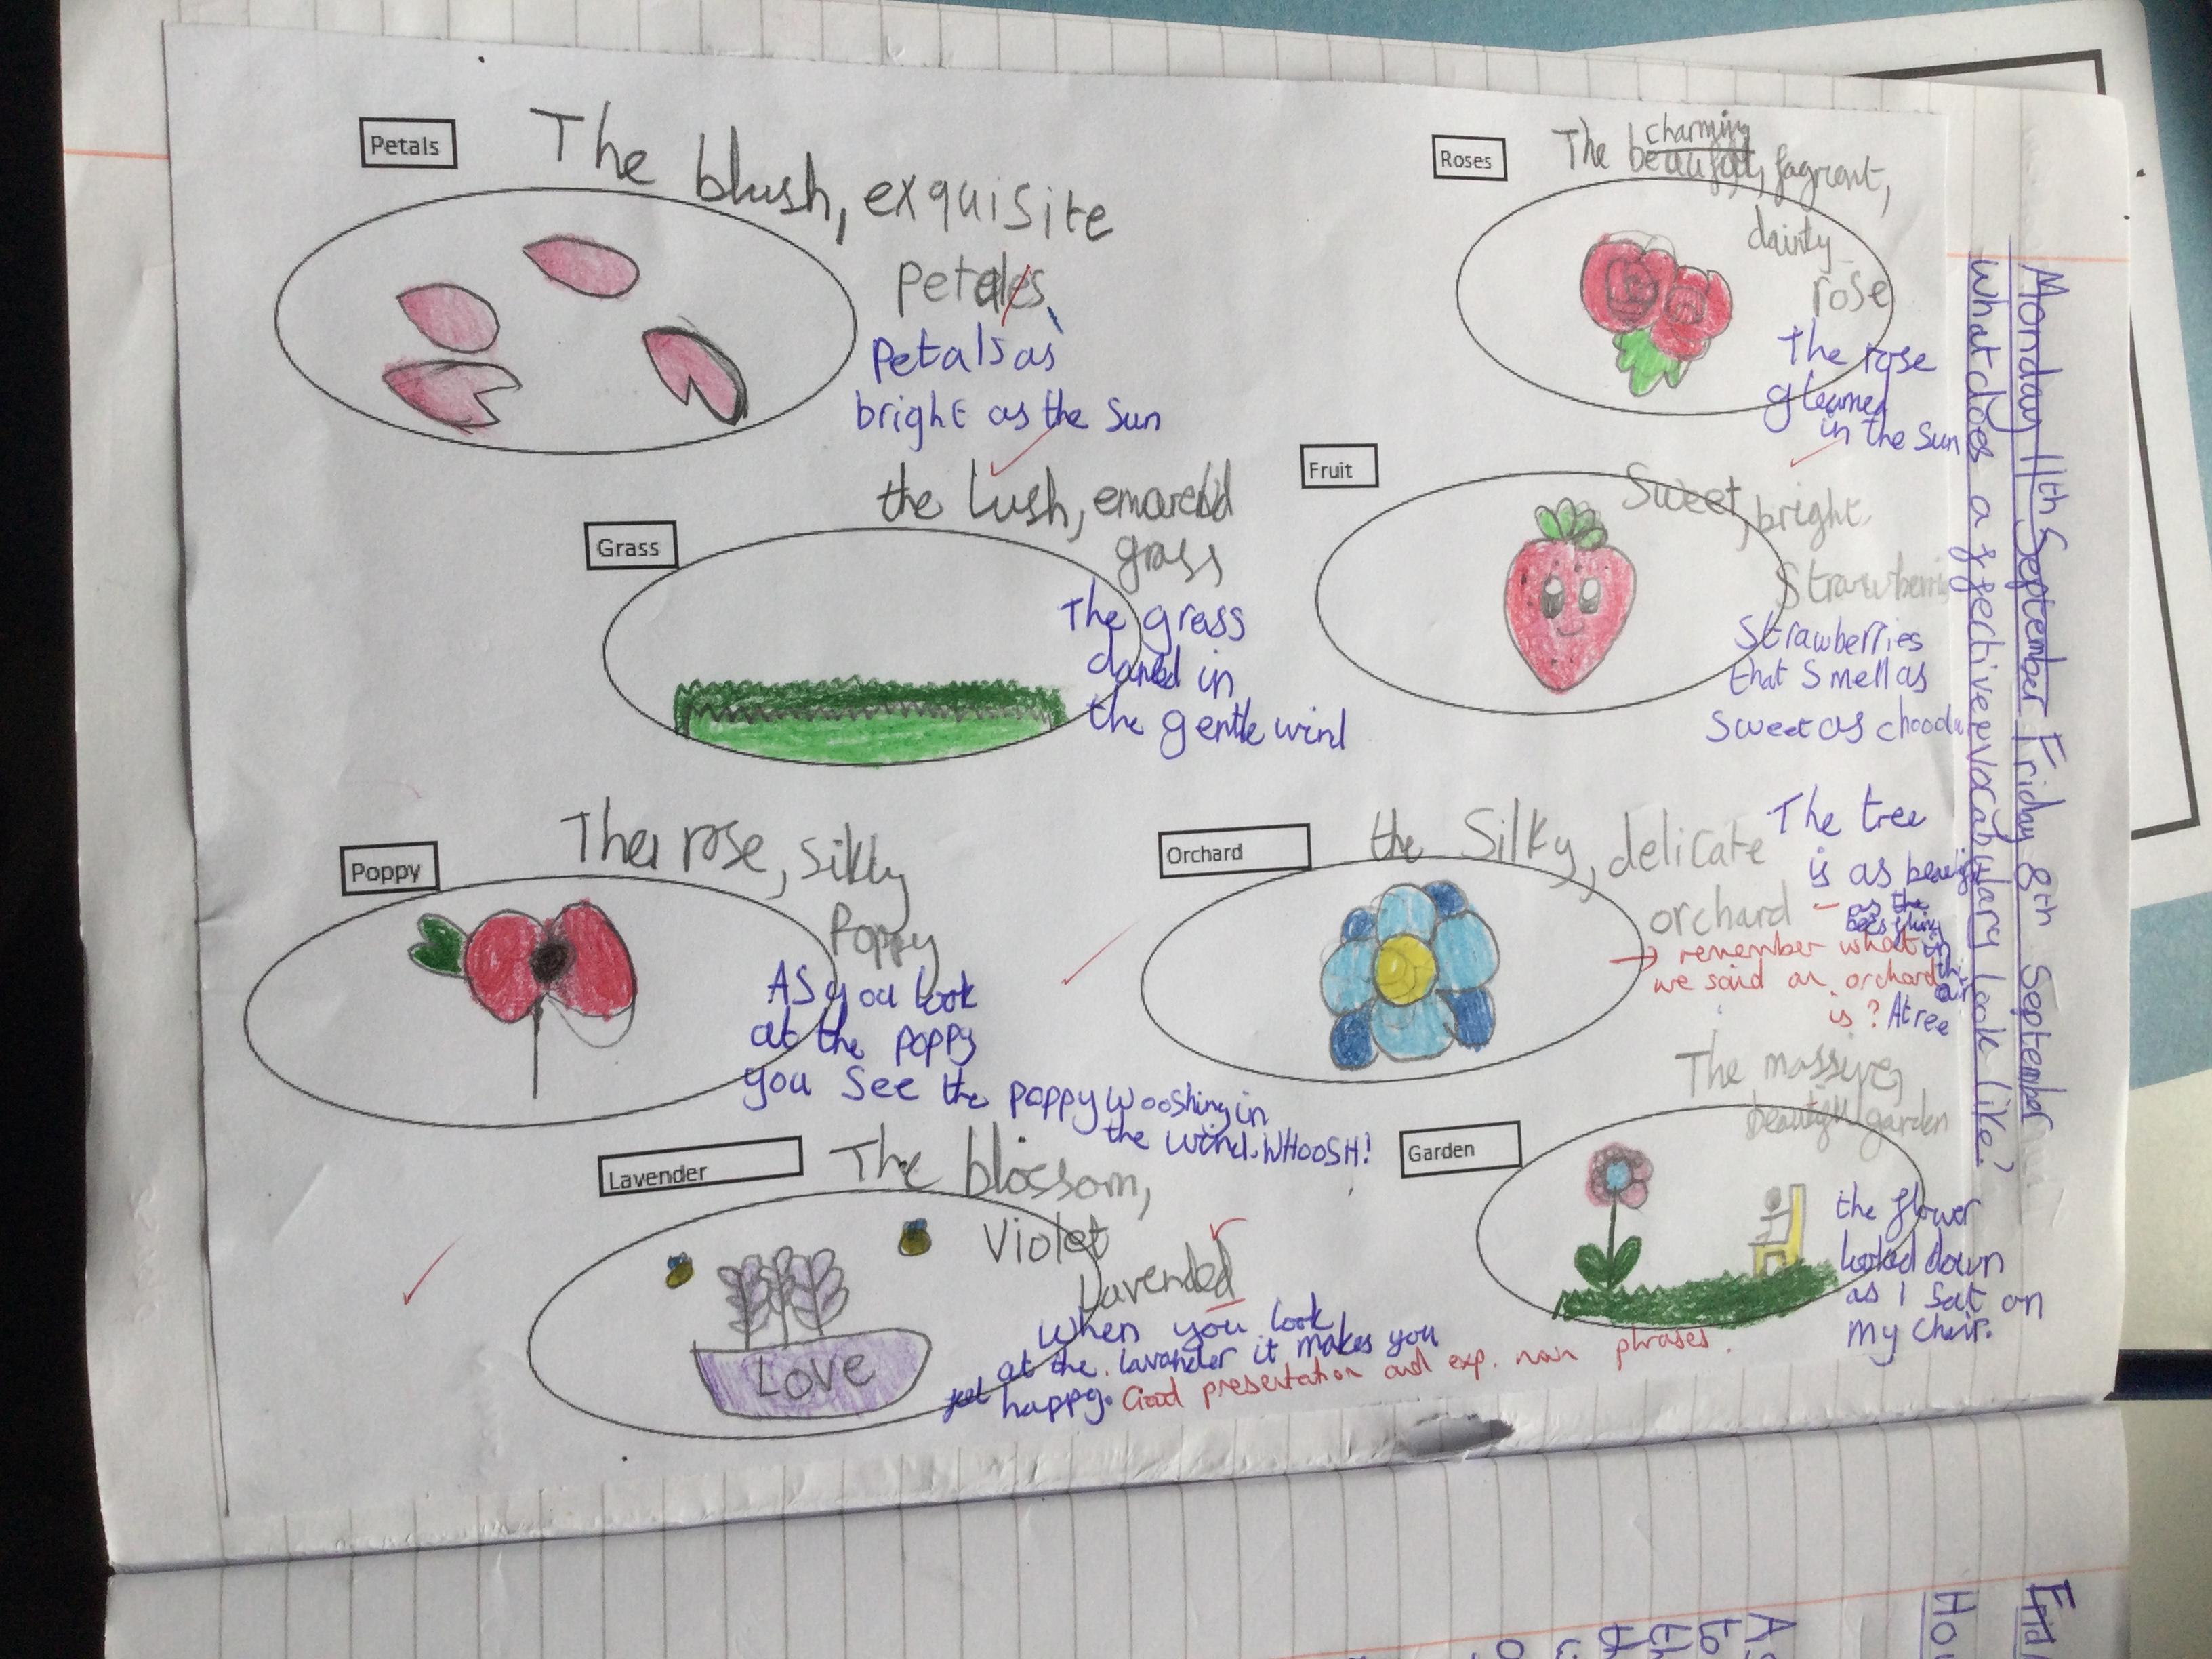 Monday 11th September Friday 8th September
What does affective vocabulary look like?
Petals
The blush, exquisite
petales
Petals as
bright as the Sun
Roses
charming
The beautiful, fagrent,
dainty
rose
The rose
gleamed
in the Sun
Grass
the Lush,
grass
The grass
danced in
the gentle wind
Fruit
Sweet, bright
Strawberries
Strawberries
that Smell as
Sweet as
Poppy
The rose, silky
Poppy
As you look
at the poppy
you See the poppy wooshing in
the wind. WHOOSH!
Orchard
the Silky, delicate
orchard
The tree
is as
as the
bees
in
the
air
→ remember what
we said an orchard
is? A tree
Lavender
The blossom,
Violet
Lavended
LOVE
When you look
at the lavander it makes you
happy.
Good presentation and exp. noun phrases.
Garden
The massive,
beautiful garden
the flower
looked down
as I Sat on
my chair.
Ho
A
to
th